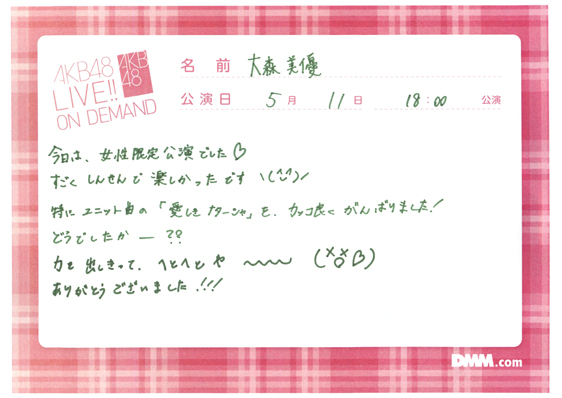 AKB48
LIVE!!
ON DEMAND
AKB
48
名 前 大森美優
公演日 5月 11日 18:00 公演
今日は、女性限定公演でした♡
すごく しんせんで 楽しかったです ヽ(^^)ノ
特に ユニット曲の 「愛しきナターシャ」を、カッコ良く がんばりました!
どうでしたかー ??
力を 出しきって、へとへとや 〜〜〜
ありがとう ございました!!!
DMM.com